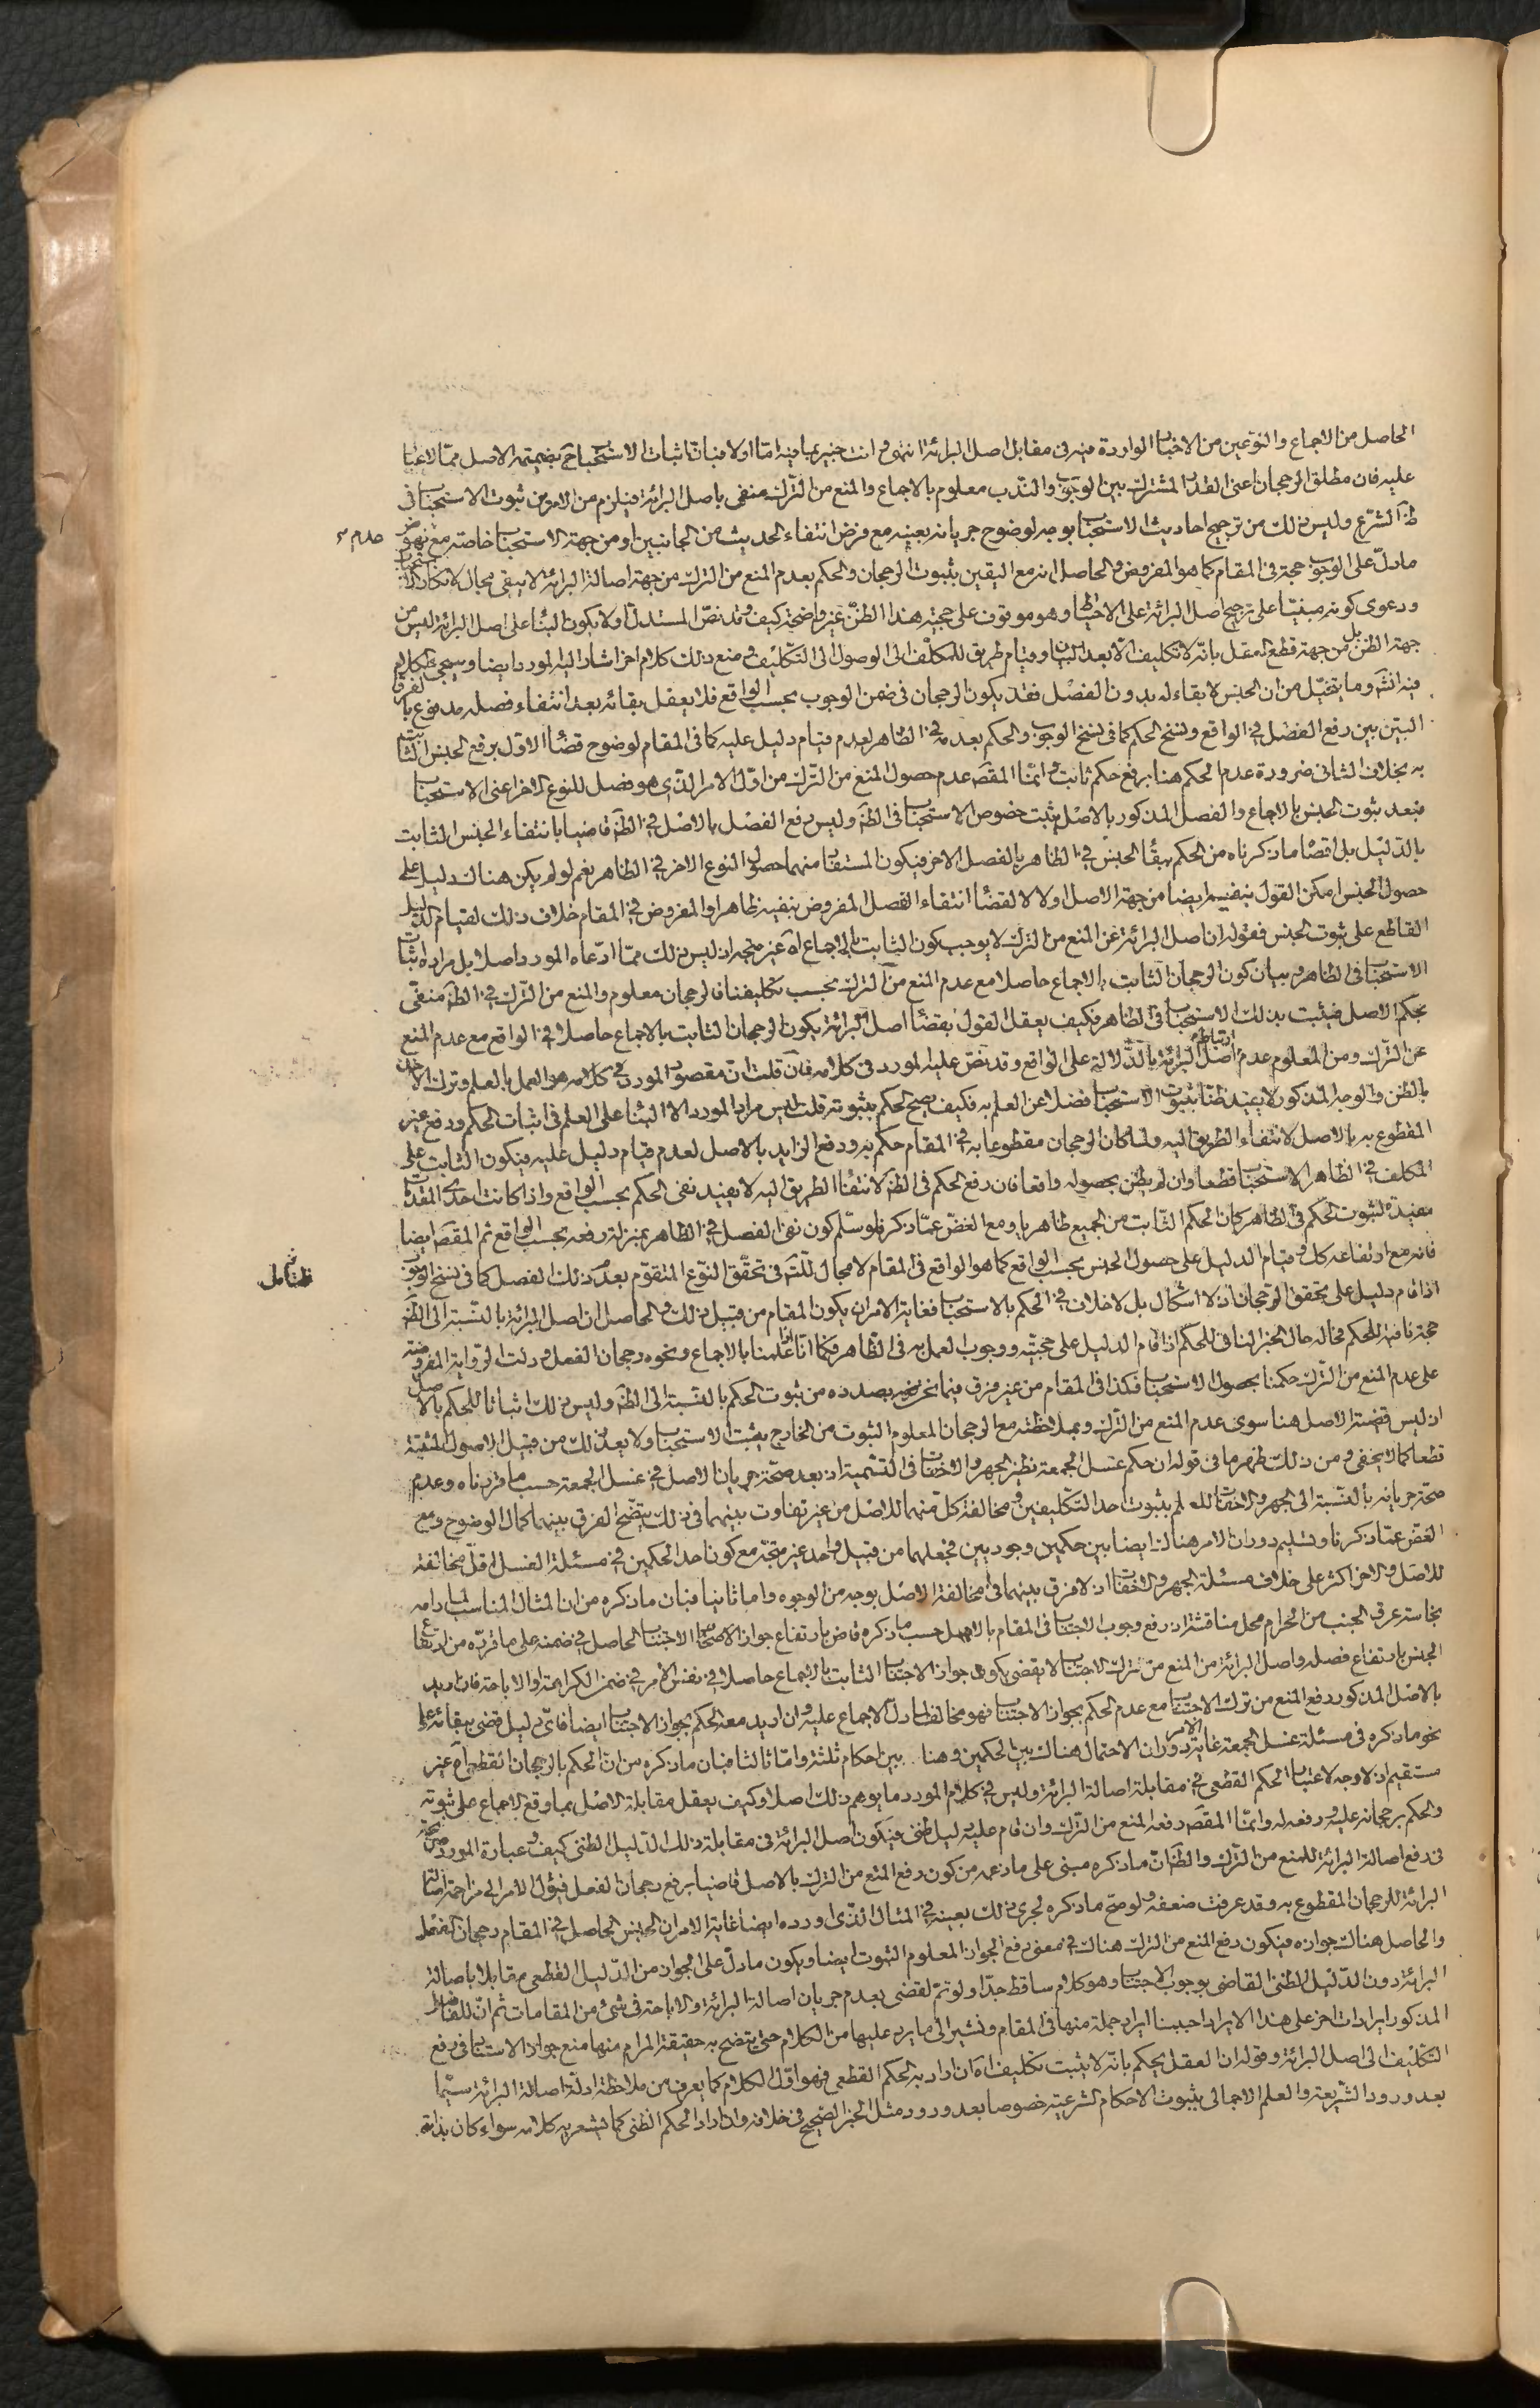 الحاصل من الاجماع والنوعين من الاخبار الواردة فيه فى مقابل اصل البرائة انتهى وانت خبير بما فيه اما اولا فبان اثبات الاستحباب ح بضميمة الاصل مما لا غبار
عليه فان مطلق الرجحان اعنى القدر المشترك بين الوجوب والندب معلوم بالاجماع والمنع من الترك منفى باصل البرائة فيلزم من الامرين ثبوت الاستحباب فى
ظ الشرع وليس ذلك من ترجيح احاديث الاستحباب بوجه لوضوح جريانه بعينه مع فرض انتفاء الحديث من الجانبين او من جهة الاستحباب خاصة مع نهوض
مادل على الوجوب حجة فى المقام كما هو المفروض والحاصل انه مع اليقين بثبوت الرجحان والحكم بعدم المنع من الترك من جهة اصالة البرائة لا يبقى مجال لانكار الاستحباب
ودعوى كونه مبنيا على ترجيح اصل البرائة على الاحتياط وهو موقوف على حجية هذا الظن غير واضحة كيف وقد نص المستدل اولا بكون البناء على اصل البرائة ليس من
جهة الظن بل من جهة قطع العقل بانه لا تكليف الا بعد البيان وقيام طريق للمكلف الى الوصول الى التكليف ومنع ذلك كلام اخر اشار اليه المورد ايضا وسيجئ الكلام
فيه انش وما يتخيل من ان الجنس لا بقاء له بدون الفصل فقد يكون الرجحان فى ضمن الوجوب بحسب الواقع فلا يعقل بقائه بعد انتفاء فصله مدفوع بالفرق
البين بين رفع الفصل فى الواقع ونسخ الحكم كما فى نسخ الوجوب والحكم بعدمه فى الظاهر لعدم قيام دليل عليه كما فى المقام لوضوح قضاء الاول برفع الجنس الثابت
به بخلاف الثانى ضرورة عدم الحكم هنا برفع حكم ثابت وانما المقص عدم حصول المنع من الترك من اول الامر الذى هو فصل للنوع الاخر اعنى الاستحباب
فبعد ثبوت الجنس بالاجماع والفصل المذكور بالاصل يثبت خصوص الاستحباب فى الظ وليس رفع الفصل بالاصل فى الظ قاضيا بانتفاء الجنس الثابت
بالدليل بل اقصا ماذكرناه من الحكم ببقاء الجنس فى الظاهر بالفصل الاخر فيكون المستفاد منهما حصول النوع الاخر فى الظاهر نعم لو لم يكن هناك دليل على
حصول الجنس امكن القول بنفيه ايضا من جهة الاصل اولا لا لقضاء انتفاء الفصل المفروض بنفيه ظاهرا والمفروض فى المقام خلاف ذلك لقيام الدليل
القاطع على ثبوت الجنس فقوله ان اصل البرائة عن المنع من الترك لا يوجب كون الثابت بالاجماع اه غير متجه اذ ليس ذلك مما ادعاه المورد اصلا بل مراده اثبات
الاستحباب فى الظاهر وبيان كون الرجحان الثابت بالاجماع حاصلا مع عدم المنع من الترك بحسب تكليفنا فالرجحان معلوم والمنع من الترك فى الظ منفى
بحكم الاصل فيثبت بذلك الاستحباب فى الظاهر فكيف يعقل القول بقضاء اصل البرائة بكون الرجحان الثابت بالاجماع حاصلا فى الواقع مع عدم المنع
عن الترك ومن المعلوم عدم ارتباط اصل البرائة بالدلالة على الواقع وقد نص عليه المورد فى كلامه فان قلت ان مقصود المورد فى كلامه هو العمل بالعلم وترك الاخذ
بالظن والوجه المذكور لا يفيد ظنا بثبوت الاستحباب فضلا عن العلم به فكيف يصح الحكم بثبوته قلت ليس مراد المورد الا البناء على العلم فى اثبات الحكم ودفع غير
المقطوع به بالاصل لانتفاء الطريق اليه ولما كان الرجحان مقطوعا به فى المقام حكم به ودفع الزايد بالاصل لعدم قيام دليل عليه فيكون الثابت على
المكلف فى الظاهر الاستحباب قطعا وان لم يظن بحصوله واقعا فان رفع الحكم فى الظ لانتفاء الطريق اليه لا يفيد نفى الحكم بحسب الواقع واذا كانت احدى المقدمات
مفيدة لثبوت الحكم فى الظاهر كان الحكم الثابت من الجميع ظاهريا ومع الغض عما ذكر فلو سلم كون نفى الفصل فى الظاهر بمنزلة رفعه بحسب الواقع ثم المقص ايضا
فانه مع ارتفاعه كك وقيام الدليل على حصول الجنس بحسب الواقع كما هو الواقع فى المقام لا مجال للتم فى تحقق النوع المتقوم بعدم ذلك الفصل كما فى نسخ الوجوب
اذا قام دليل على تحقق الرجحان اذ لا اشكال بل لا خلاف فى الحكم بالاستحباب فغاية الامر ان يكون المقام من قبيل ذلك والحاصل ان اصل البرائة بالنسبة الى الظ
حجة نافية للحكم فحاله حال الخبر النافى للحكم اذا قام الدليل على حجيته ووجوب العمل به فى الظاهر فكما انا اذا علمنا بالاجماع ونحوه رجحان الفعل ودلت الرواية المفروضة
على عدم المنع من الترك حكمنا بحصول الاستحباب فكذا فى المقام من غير فرق فيما نحن بصدده من ثبوت الحكم بالنسبة الى الظ وليس ذلك اثباتا للحكم بالاصل
اذ ليس قضية الاصل هنا سوى عدم المنع من الترك وبملاحظته مع الرجحان المعلوم الثبوت من الخارج يثبت الاستحباب ولا يعد ذلك من قبيل الاصول المثبتة
قطعا كما لا يخفى ومن ذلك ظهر ما فى قوله ان حكم غسل الجمعة نظير الجهر والاخفات فى التسمية اذ بعد صحة جريان الاصل فى غسل الجمعة حسب ما قررناه وعدم
صحة جريانه بالنسبة الى الجهر والاخفات للعلم بثبوت احد التكليفين ومخالفة كل منهما للاصل من غير تفاوت بينهما فى ذلك يتضح الفرق بينهما كمال الوضوح ومع
الغض عما ذكرنا وتسليم دوران الامر هناك ايضا بين حكمين وجوديين فجعلهما من قبيل واحد غير متجه مع كون احد الحكمين فى مسئلة الغسل اقل مخالفة
للاصل والاخر اكثر على خلاف مسئلة الجهر والاخفات اذ لا فرق بينهما فى مخالفة الاصل بوجه من الوجوه واما ثانيا فبان ما ذكره من ان المثال المناسب لما رامه
نجاسة عرق الجنب من الحرام محل مناقشة اذ رفع وجوب الاجتناب فى المقام بالاصل حسب ما ذكره قاض بارتفاع جواز الاجتناب الحاصل فى ضمنه على ما قرره من ارتفاع
الجنس بارتفاع فصله واصل البرائة من المنع من ترك الاجتناب لا يقضى بكون جواز الاجتناب الثابت بالاجماع حاصلا فى نفس الامر فى ضمن الكراهة او الاباحة فان اريد
بالاصل المذكور دفع المنع من ترك الاجتناب مع عدم الحكم بجواز الاجتناب فهو مخالف لما دل الاجماع عليه وان اريد معه الحكم بجواز الاجتناب ايضا فاى دليل قضى ببقائه على
نحو ما ذكره فى مسئلة غسل الجمعة غاية الامر دوران الاحتمال هناك بين الحكمين وهنا بين احكام ثلثة واما ثالثا فبان ما ذكره من ان الحكم بالرجحان القطعى اه غير
مستقيم اذ لا وجه لاعتبار الحكم القطعى فى مقابلة اصالة البرائة وليس فى كلام المورد ما يوهم ذلك اصلا وكيف يعقل مقابلة الاصل بما وقع الاجماع على ثبوته
والحكم برجحانه عليه ودفعه له وانما المقص دفعه المنع من الترك وان قام عليه دليل ظنى فيكون اصل البرائة فى مقابلة ذلك الدليل الظنى كيف وعبارة المورد صريحة
فى دفع اصالة البرائة للمنع من الترك والظ ان ما ذكره مبنى على ما زعمه من كون رفع المنع من الترك بالاصل قاضيا برفع رجحان الفعل فيؤل الامر الى مزاحمة اصالة
البرائة للرجحان المقطوع به وقد عرفت ضعفه ولو صح ما ذكره لجرى ذلك بعينه فى المثال الذى اورده ايضا غاية الامر ان الجنس الحاصل فى المقام رجحان الفعل
والحاصل هناك جوازه فيكون رفع المنع من الترك هناك فى معنى رفع الجواز المعلوم الثبوت ايضا ويكون مادل على الجواز من الدليل القطعى مقابلا باصالة
البرائة دون الدليل الظنى القاضى بوجوب الاجتناب وهو كلام ساقط جدا ولو تم لقضى بعدم جريان اصالة البرائة والاباحة فى شئ من المقامات ثم ان للفاضل
المذكور ايرادات اخر على هذا الايراد احببنا ايراد جملة منها فى المقام ونشير الى ما يرد عليها من الكلام حتى يتضح به حقيقة المرام منها منع جواز الاستناد فى رفع
التكليف الى اصل البرائة وقوله ان العقل يحكم بانه لا يثبت تكليف اه ان اراد به الحكم القطعى فهو اول الكلام كما يعرف من ملاحظة ادلة اصالة البرائة سيما
بعد ورود الشريعة والعلم الاجمالى بثبوت الاحكام الشرعية خصوصا بعد ورود مثل الخبر الصحيح فى خلافه وان اراد الحكم الظنى كما يشعر به كلامه سواء كان بذاته
عدم
فليتامل